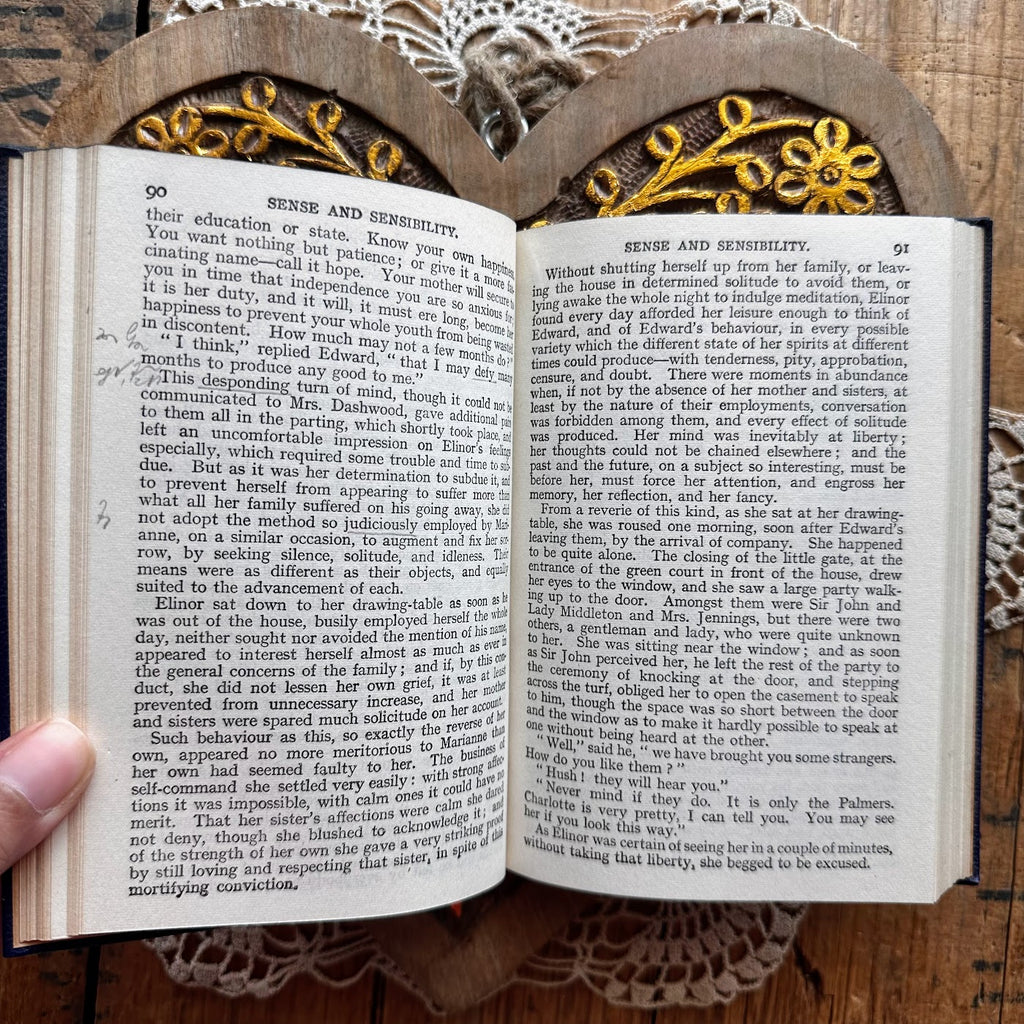 90
SENSE AND SENSIBILITY.
their education or state. Know your own happiness.
You want nothing but patience; or give it a more fas-
cinating name—call it hope. Your mother will secure to
you in time that independence you are so anxious for;
it is her duty, and it will, it must ere long, become her
happiness to prevent your whole youth from being wasted
in discontent. How much may not a few months do?"
"I think," replied Edward, "that I may defy many
months to produce any good to me."
This desponding turn of mind, though it could not be
communicated to Mrs. Dashwood, gave additional pain
to them all in the parting, which shortly took place, and
left an uncomfortable impression on Elinor's feelings
especially, which required some trouble and time to sub-
due. But as it was her determination to subdue it, and
to prevent herself from appearing to suffer more than
what all her family suffered on his going away, she did
not adopt the method so judiciously employed by Mari-
anne, on a similar occasion, to augment and fix her sor-
row, by seeking silence, solitude, and idleness. Their
means were as different as their objects, and equally
suited to the advancement of each.
Elinor sat down to her drawing-table as soon as he
was out of the house, busily employed herself the whole
day, neither sought nor avoided the mention of his name,
appeared to interest herself almost as much as ever in
the general concerns of the family; and if, by this con-
duct, she did not lessen her own grief, it was at least
prevented from unnecessary increase, and her mother
and sisters were spared much solicitude on her account.
Such behaviour as this, so exactly the reverse of her
own, appeared no more meritorious to Marianne than
her own had seemed faulty to her. The business of
self-command she settled very easily: with strong affec-
tions it was impossible, with calm ones it could have no
merit. That her sister's affections were calm she dared
not deny, though she blushed to acknowledge it; and
of the strength of her own she gave a very striking proof
by still loving and respecting that sister, in spite of this
mortifying conviction.
SENSE AND SENSIBILITY.
91
Without shutting herself up from her family, or leav-
ing the house in determined solitude to avoid them, or
lying awake the whole night to indulge meditation, Elinor
found every day afforded her leisure enough to think of
Edward, and of Edward's behaviour, in every possible
variety which the different state of her spirits at different
times could produce—with tenderness, pity, approbation,
censure, and doubt. There were moments in abundance
when, if not by the absence of her mother and sisters, at
least by the nature of their employments, conversation
was forbidden among them, and every effect of solitude
was produced. Her mind was inevitably at liberty;
her thoughts could not be chained elsewhere; and the
past and the future, on a subject so interesting, must be
before her, must force her attention, and engross her
memory, her reflection, and her fancy.
From a reverie of this kind, as she sat at her drawing-
table, she was roused one morning, soon after Edward's
leaving them, by the arrival of company. She happened
to be quite alone. The closing of the little gate, at the
entrance of the green court in front of the house, drew
her eyes to the window, and she saw a large party walk-
ing up to the door. Amongst them were Sir John and
Lady Middleton and Mrs. Jennings, but there were two
others, a gentleman and lady, who were quite unknown
to her. She was sitting near the window; and as soon
as Sir John perceived her, he left the rest of the party to
the ceremony of knocking at the door, and stepping
across the turf, obliged her to open the casement to speak
to him, though the space was so short between the door
and the window as to make it hardly possible to speak at
one without being heard at the other.
"Well," said he, "we have brought you some strangers.
How do you like them?"
"Hush! they will hear you."
"Never mind if they do. It is only the Palmers.
Charlotte is very pretty, I can tell you. You may see
her if you look this way."
As Elinor was certain of seeing her in a couple of minutes,
without taking that liberty, she begged to be excused.